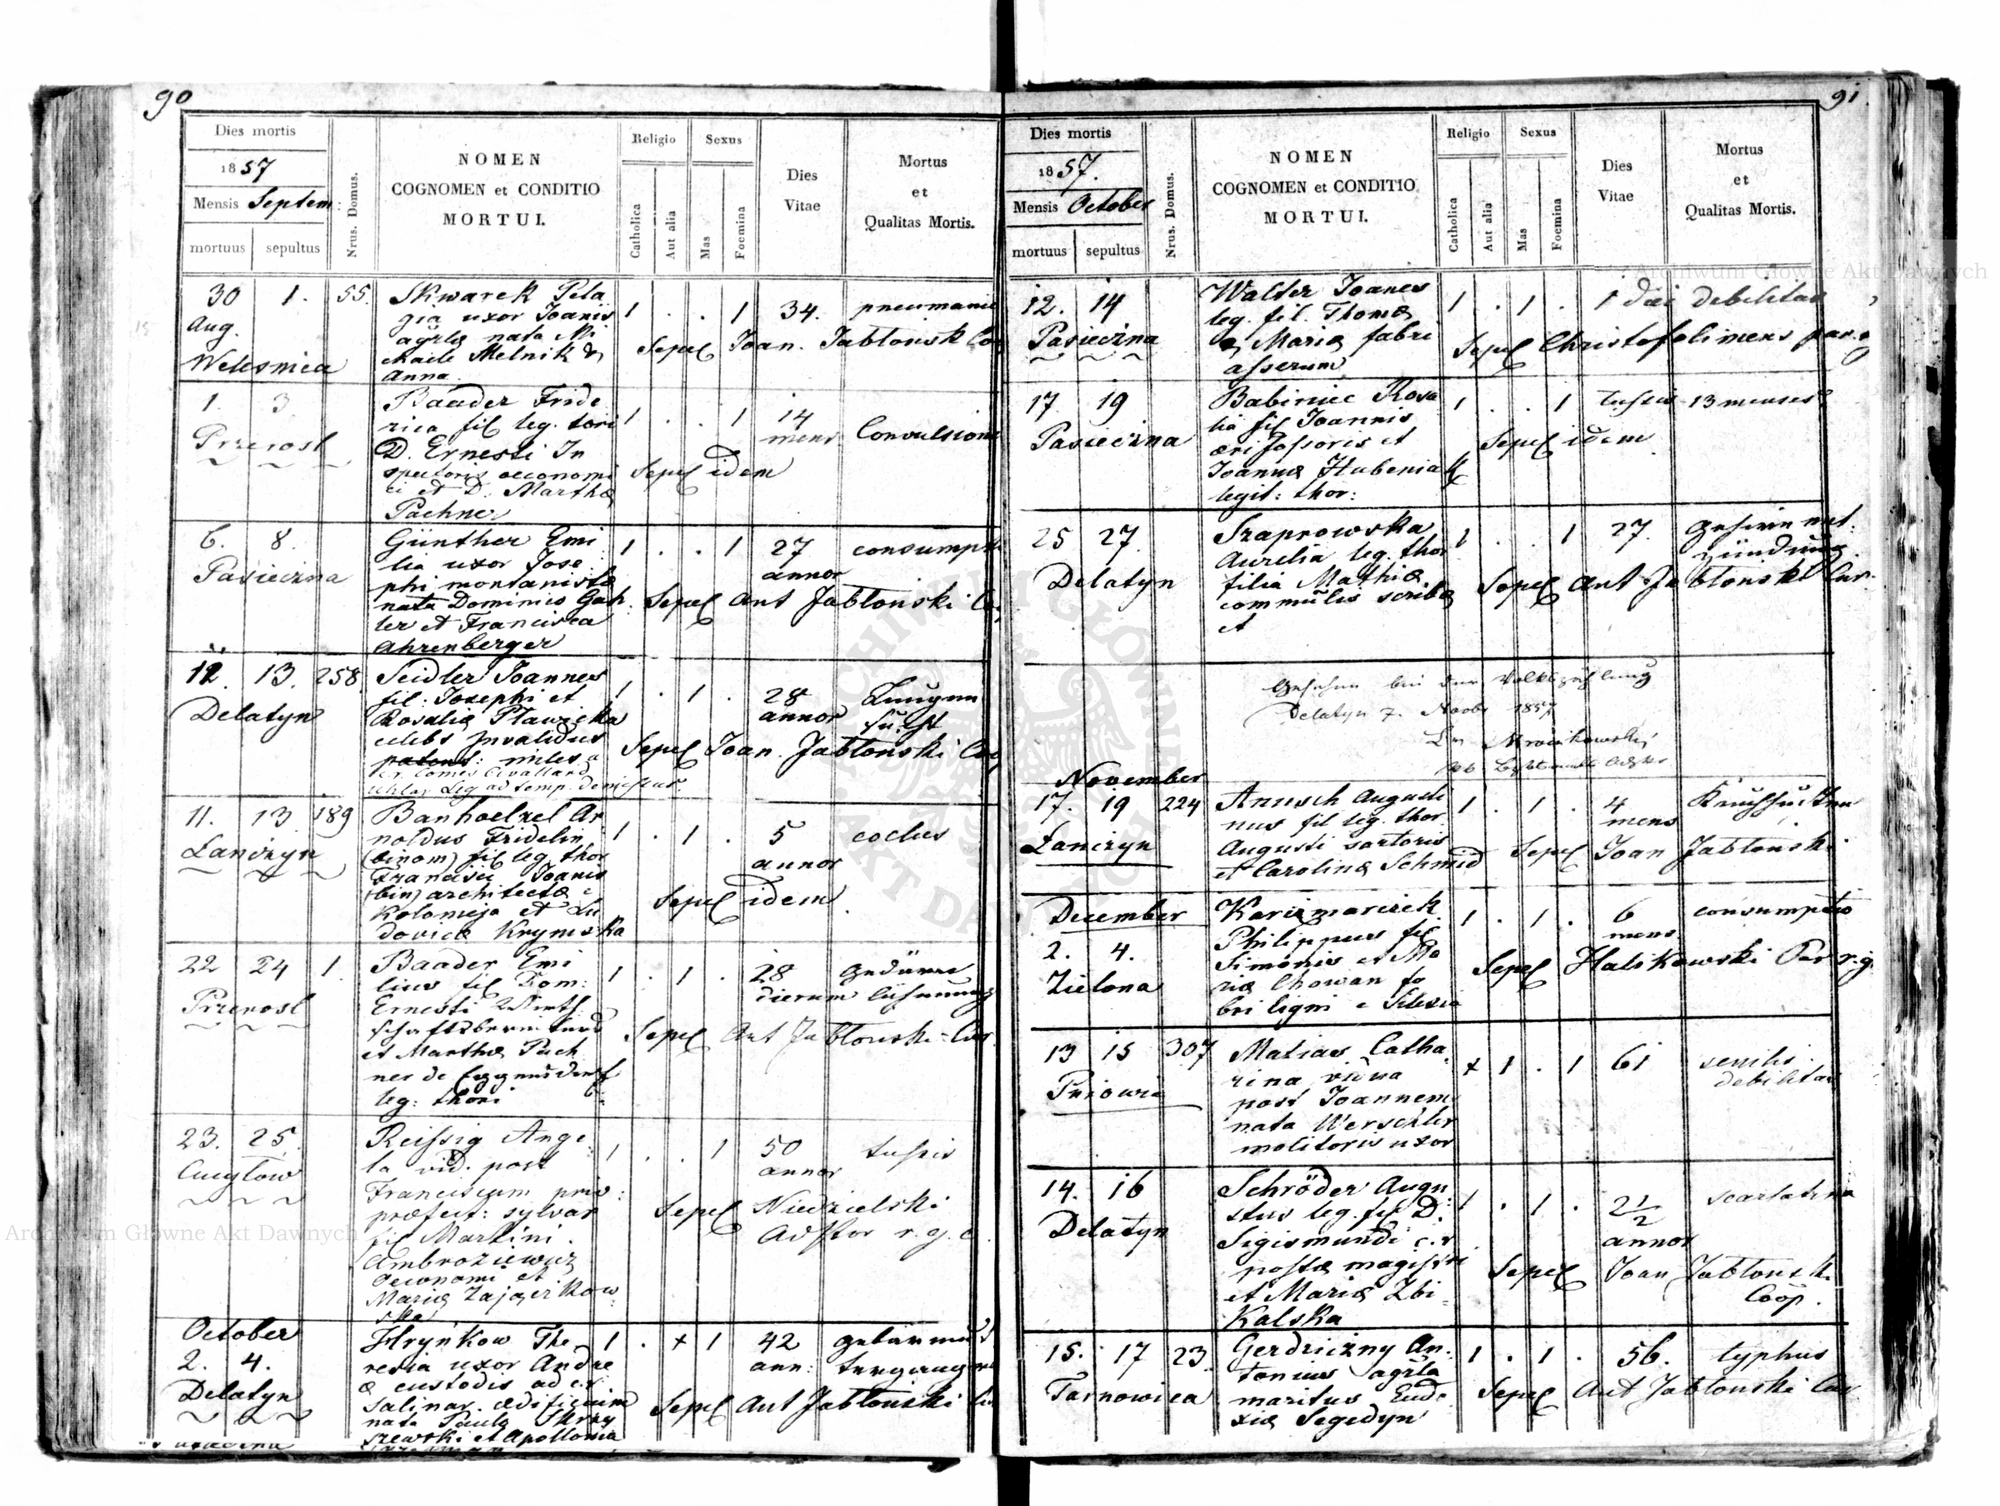 90
Dies mortis
1857
Mensis Septem:
mortuus sepultus
Nrus. Domus.
NOMEN
COGNOMEN et CONDITIO
MORTUI.
Religio
Catholica
Aut alia
Sexus
Mas
Foemina
Dies
Vitae
Mortus
et
Qualitas Mortis.
30 1. 55.
Aug.
Welesnica
Skwarek Pela
gia uxor Joanis
agrlæ nata Mi
chaele Melnik &
Anna.
1 . . 1 34. pneumania
Sepel Joan. Jabłonsk
1. 3.
Przerosl
Baader Fride
rica fil leg. tori
D. Ernesti In
spectoris oeconomi
ci et D. Marthæ
Pachner
1 . . 1 14
mens Convulsion
Sepel idem
6. 8.
Pasieczna
Günther Emi
lia uxor Jose
phi montanistæ
nata Dominico Gah
ler et Francisca
Ahrenberger
1 . . 1 27
annor consumpt
Sepel Ant Jabłonski
12. 13. 258.
Delatyn
Seidler Joannes
fil. Josephi et
Rosaliæ Pławicka
celebs invalidus
miles
1 . 1 . 28
annor Lungen
sucht
Sepel Joan. Jabłonski
11. 13 189
Lanczyn
Banhoelzel Ar
noldus Fridelin
(binom) fil leg. thor
Francisci Joanis
(bin) architectæ e
Kolomeja et Lu
dovicæ Krynska
1 . 1 . 5
annor
Sepel idem
22 24 1.
Przerosl
Baader Emi
lius fil Tom:
Ernesti Wirth
et Marthæ Pach
ner de
leg: thori
1 . 1 . 28
dierum
Sepel Ant Jabłonski Cur
23. 25.
Reissig Ange
la vid. post
Franciscum priv:
præfect: sylvar
fil Martini
Ambroziewicz
oeconomi et
Mariæ Zajączkow
ska
1 . . 1 50
annor tussis
Sepel Niedzielski
r. g. c.
October
2. 4.
Delatyn
Hrynkow The
resia uxor Andre
æ custodis ad c.r
Salinar. ædificium
nata Paulo Skrzy
szewski et Apollonia
1 . x 1 42
ann:
Sepel Ant Jabłonski
91.
Dies mortis
1857.
Mensis October
mortuus sepultus
Nrus. Domus.
NOMEN
COGNOMEN et CONDITIO
MORTUI.
Religio
Catholica
Aut alia
Sexus
Mas
Foemina
Dies
Vitae
Mortus
et
Qualitas Mortis.
12. 14
Pasieczna
Walter Joanes
leg. fil. Thomæ
& Mariæ fabri
asserum
1 . 1 . 1 diei debilitas
Sepel
17. 19
Pasieczna
Babiniec Rosa
lia fil Joannis
æri fossoris et
Joannæ Hubeniak
legit: thor:
1 . . 1 tussis 13 menses
Sepel idem
25 27.
Delatyn
Szaprowska
Aurelia leg. thor
filia Mathiæ
commūlis scribæ
et
1 . . 1 27.
Sepel Ant Jabłonski Cur.
Gesehen bei der Volkszählung
Delatyn 7. Novbr 1857
November
17. 19 224
Lanczyn
Anusch Augusti
nus fil leg. thor.
Augusti sartoris
et Carolinæ Schmid
1 . 1 . 4
mens
Sepel Joan Jabłonski
December
2. 4.
Zielona
Karczmarczek
Philippus fil
Simonis et Ma
riæ Chowan fa
bri ligni e Silesia
1 . 1 . 6
mens consumptio
Sepel Halikowski Par r.g.
13 15 307
Matias Catha
rina vidua
post Joannem
nata Werschler
molitoris uxor
x 1 . 1 61 senilis
debilitas
14. 16
Delatyn
Schröder Augu
stus leg. fil D.
Sigismundi c.r
postæ magistri
et Mariæ Zbi
kalska
1 . 1 . 2½
annor scarlatina
Sepel Joan Jabłonski
Coop.
15. 17 23.
Tarnowica
Gerdziczny An
tonius agrla
maritus Eudo
xiæ Segedyn
1 . 1 . 56. typhus
Sepel Ant Jabłonski Cur.
Archiwum Główne Akt Dawnych
Archiwum Główne Akt Dawnych
ARCHIWUM GŁÓWNE AKT DAWNYCH